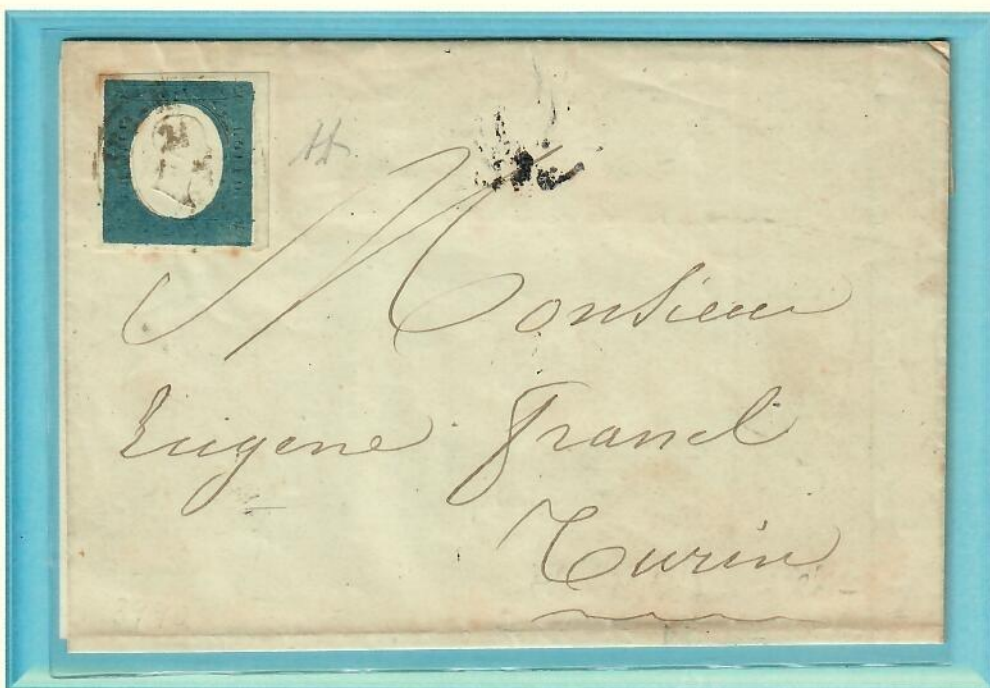 Monsieur
Eugene Franel
Turin